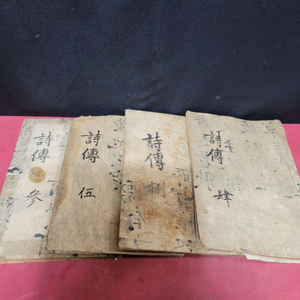 詩傳
參
詩傳
伍
詩傳
捌
詩傳
肆